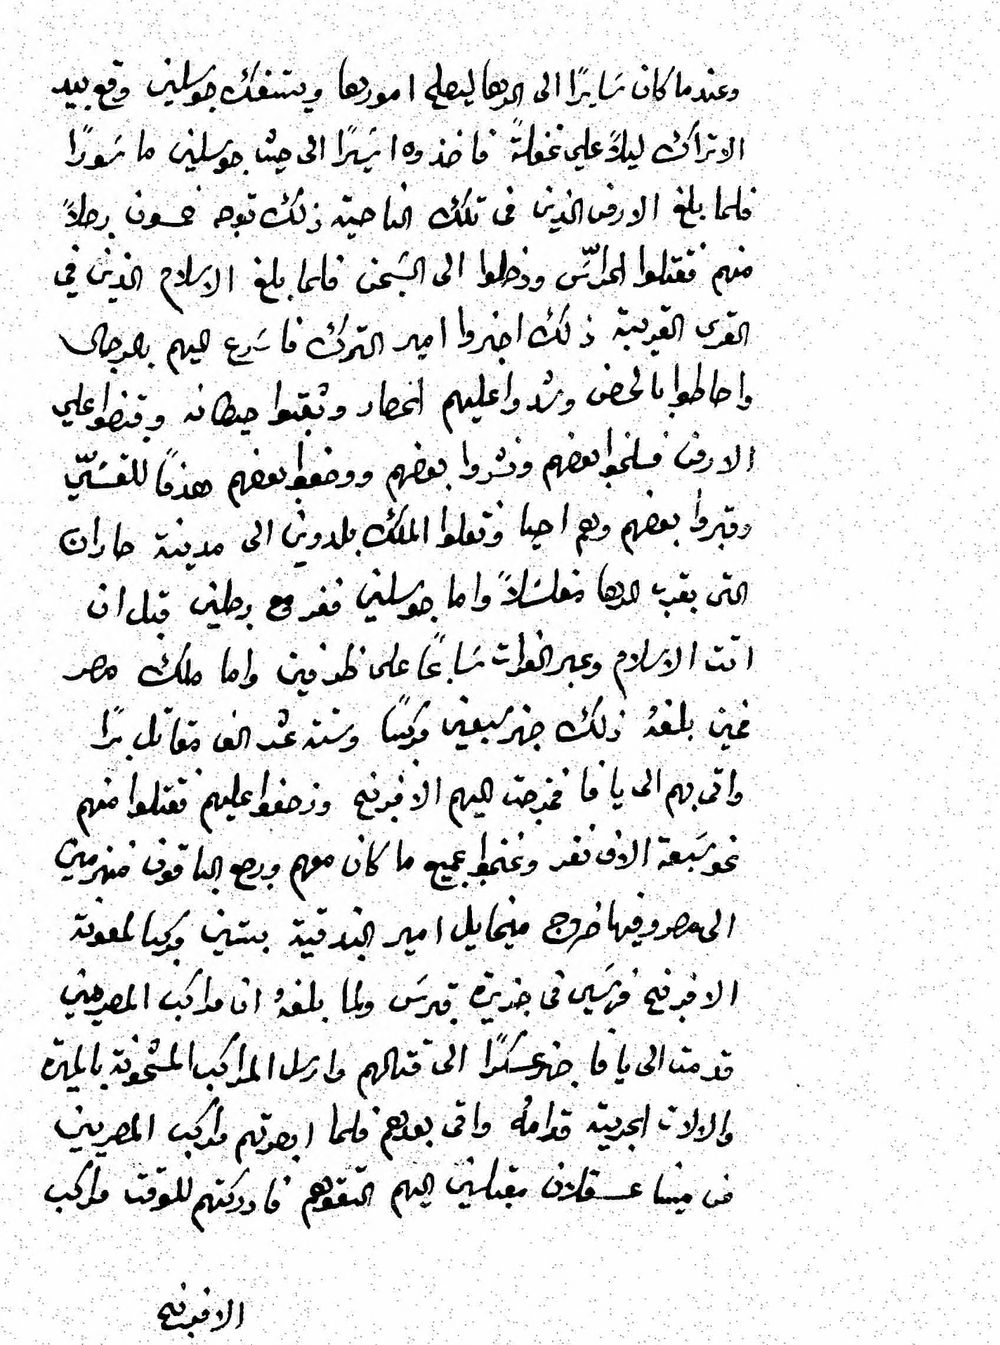 وعندما كان سَايرًا الى الرها ليصلح امورها ويستفك جوسلين وقع بيد
الاتراك ليلاً على غفلةً فاخذوه اسَيرًا الى حيث جوسلين ماسَورًا
فلما بلغ الارمن الذين فى تلك الناحية ذلك توجه خمسون رجلاً
منهم فقتلوا الحراسَّ ودخلوا الى السَجن فلما بلغ الاسلام الذين في
القرى القريبة ذلك اخبروا امير الترك فاسَرع اليهم بالرجال
واحاطوا بالحصن وشدوا عليهم الحصار ونقبوا حيطانه وقبضوا على
الارمن فسلخوا بعضهم ونشروا بعضهم ووضعوا بعضهم هدفًا للقسَيّ
وقبروا بعضهم وهم احيا ونقلوا الملك بلدوين الى مدينة حاران
التى بقرب الرها مغلسَلاً واما جوسلين ففر مع رجلين قبل ان
اتت الاسلام وعبر الفرات سَابحًا على ظرفين واما ملك مصر
فحين بلغهُ ذلك جهز سبعين مركبًا وستة عشر الف مقاتل برًا
واتى بهم الى يافا فخرجت اليهم الافرنج وزحفوا عليهم فقتلوا منهم
نحو سَبعة الاف نفر وغنموا جميع ما كان معهم ورجع الباقون منهزمين
الى مصر وفيها خروج ميخايل امير البندقية بستين مركبا لمعونة
الافرنج فرسَى فى جزيرة قبرسَ ولما بلغهُ ان مراكب المصريين
قدمت الى يافا جهز عسكرًا الى قتالهم وارسل المراكب المشحونة بالميرة
والالات الحربية قدامهُ واتى بعدهم فلما ابصرتهم مراكب المصريين
من مينا عسقلان مقبلين اليهم التقوهم فادركتهم للوقت مراكب
الافرنج